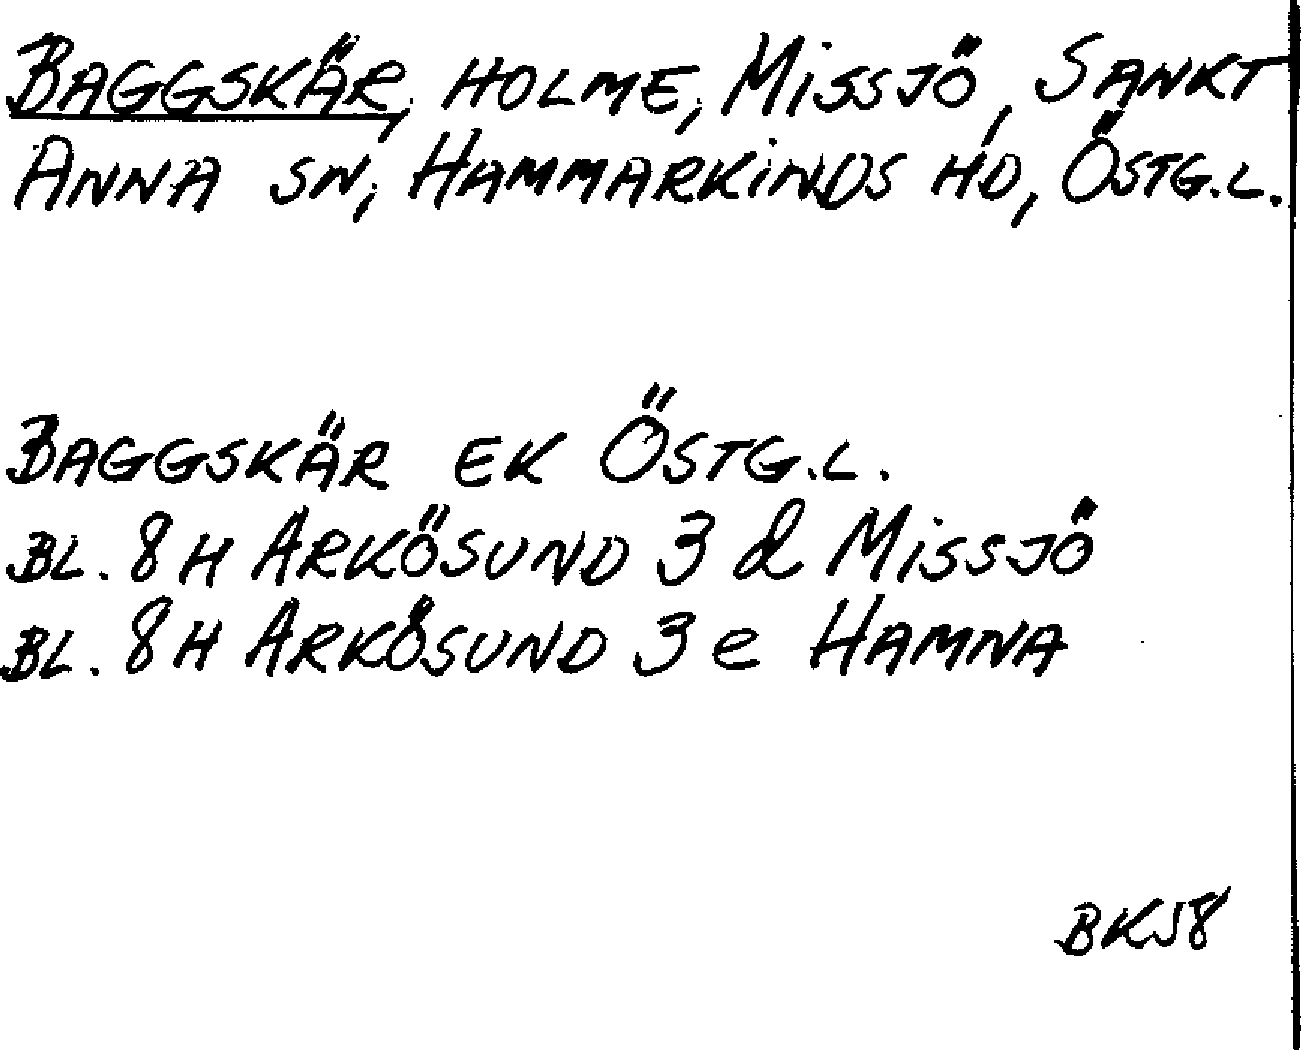 BAGGSKÄR, HOLME, MISSJÖ, SANKT
ANNA SN, HAMMARKINDS HD, ÖSTG.L.
BAGGSKÄR EK ÖSTG.L.
BL. 8H ARKÖSUND 3 d MISSJÖ
BL. 8H ARKÖSUND 3 e HAMNA